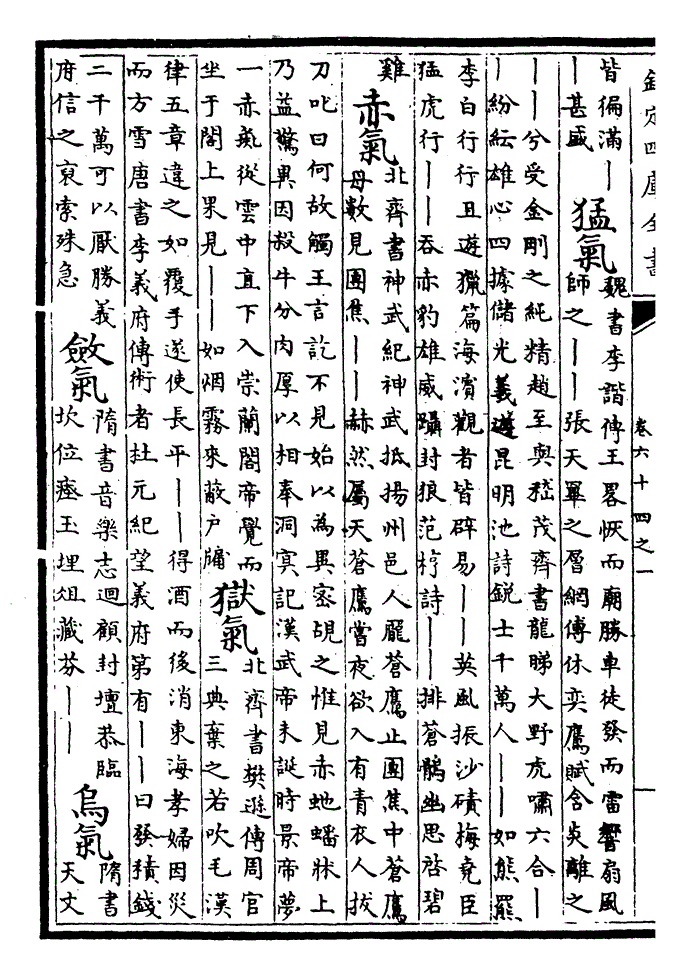 欽定四庫全書
卷六十四之一
皆徧滿—
—甚盛
猛氣
魏書李諧傳王畧恢而廟勝車徒發而雷響扇風
師之——張天畢之層網傅休奕鷹賦含炎離之
——兮受金剛之純精趙至與嵇茂齊書龍睇大野虎嘯六合—
—紛紜雄心四據儲光羲遊昆明池詩銳士千萬人——如熊羆
李白行行且遊獵篇海濱觀者皆辟易——英風振沙磧梅堯臣
猛虎行——吞赤豹雄威躡封狼范梈詩——排蒼鶻幽思啓碧
雞
赤氣
北齊書神武紀神武抵揚州邑人龎蒼鷹止團焦中蒼鷹
母數見團焦——赫然屬天蒼鷹嘗夜欲入有青衣人拔
刀叱曰何故觸王言訖不見始以為異密覘之惟見赤虵蟠牀上
乃益驚異因殺牛分肉厚以相奉洞冥記漢武帝未誕時景帝夢
一赤彘從雲中直下入崇蘭閣帝覺而
坐于閣上果見——如烟霧來蔽户牖
獄氣
北齊書樊遜傳周官
三典棄之若吹毛漢
律五章違之如覆手遂使長平——得酒而後消東海孝婦因災
而方雪唐書李義府傳術者杜元紀望義府第有——曰發積錢
二千萬可以厭勝義
府信之裒索殊急
斂氣
隋書音樂志迴顧封壇恭臨
坎位瘞玉埋俎藏芬——
烏氣
隋書
天文